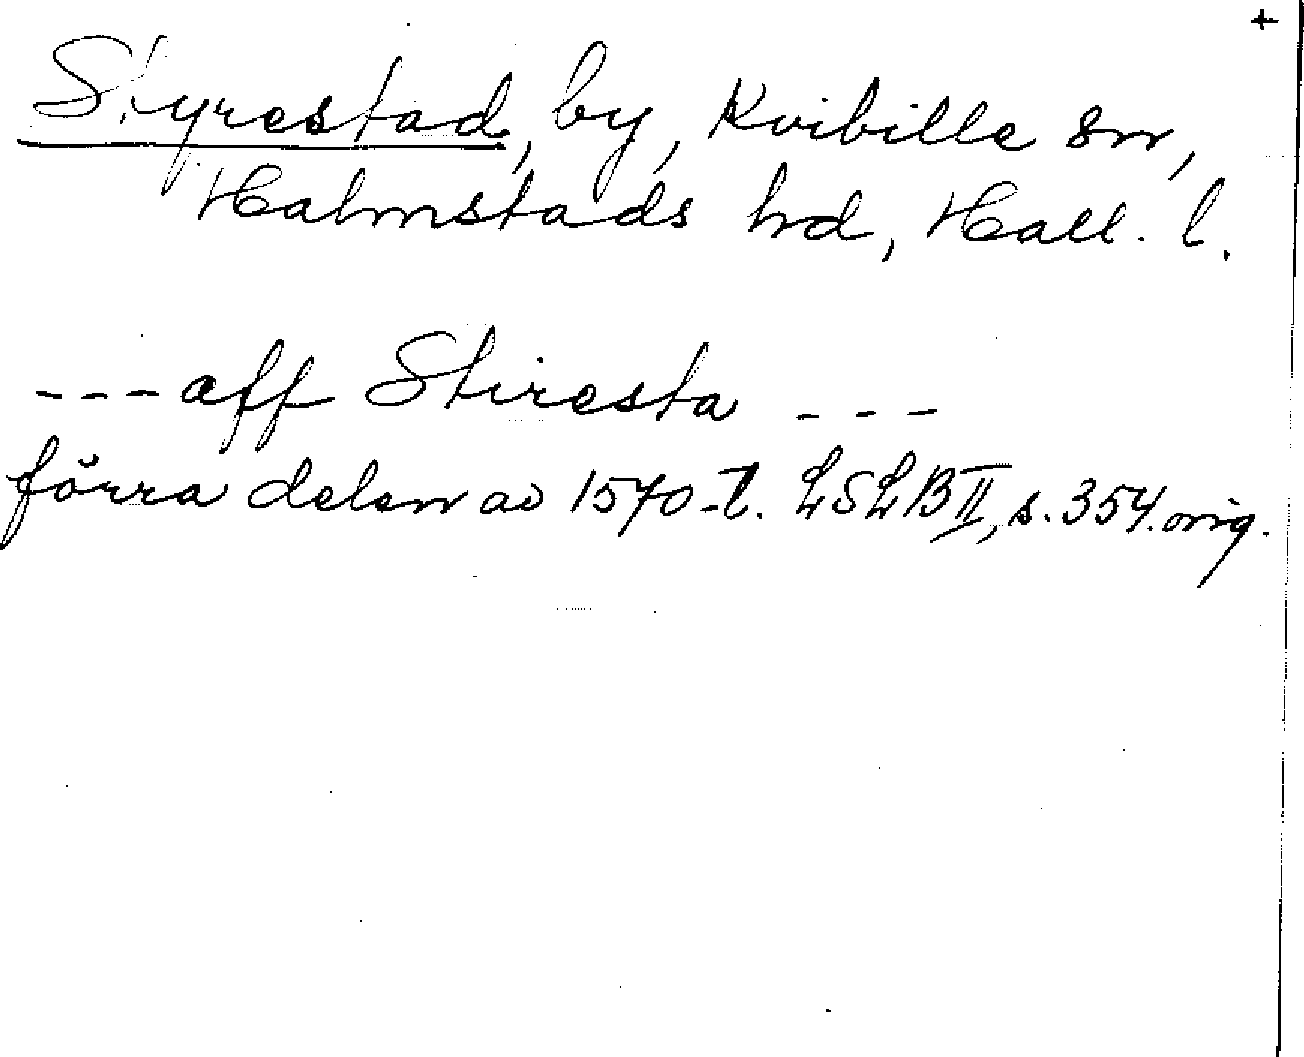 +
Styrestad, by, Kvibille sn,
Halmstads hd, Hall. l.
---aff Stiresta ---
förra delen av 1570-t. LSLB II, s. 354. orig.